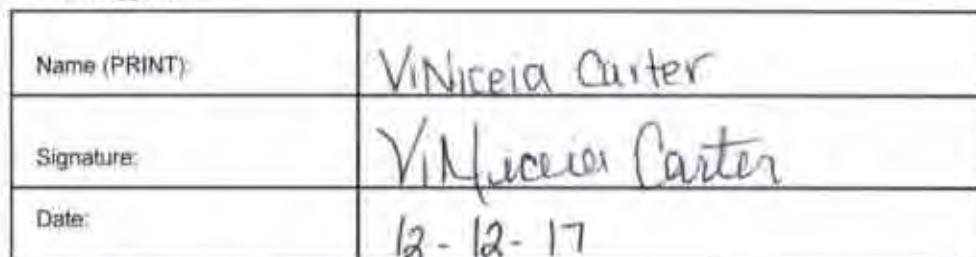 Name (PRINT): ViNiceia Carter
Signature: ViNiceia Carter
Date: 12-12-17